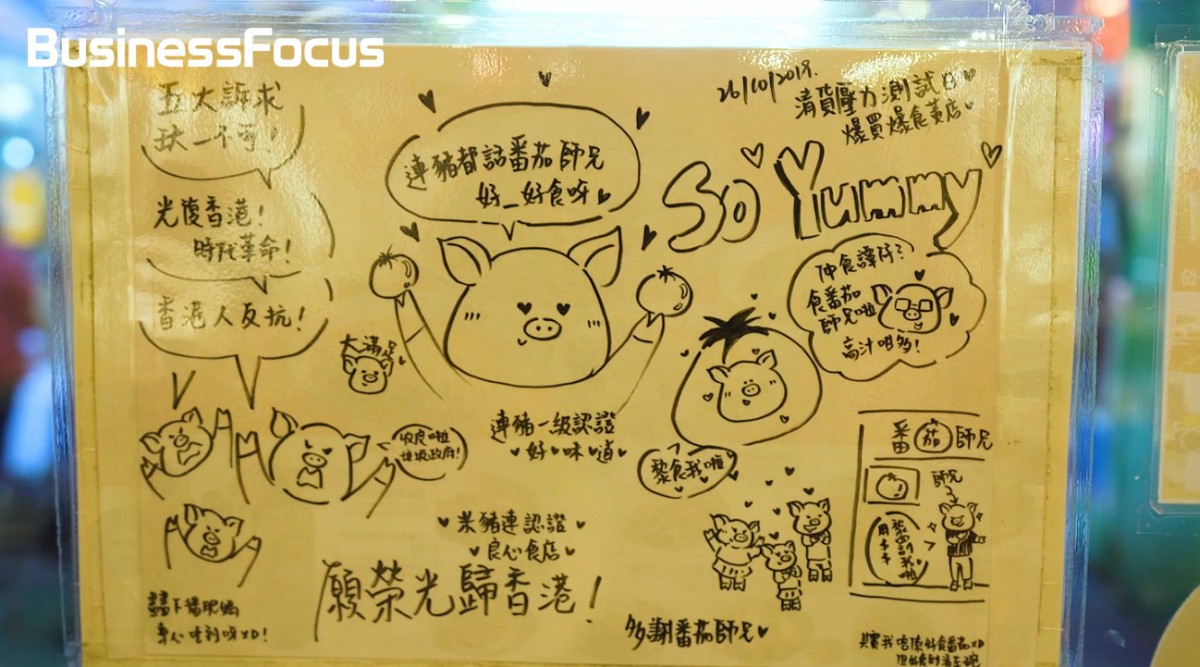 BusinessFocus
五大訴求
缺一不可！
光復香港！
時代革命！
香港人反抗！
連豬都話番茄師兄
好_好食呀
26/10/2019.
清貨壓力測試日
爆買爆食黃店
So Yummy
仲食譚仔？
食番茄
師兄啦
高汁咁多！
大滿足
收皮啦
垃圾政府！
連豬一級認證
好味道
黎食我啦
番茄師兄
師兄
米豬連認證
良心食店
願榮光歸香港！
多謝番茄師兄